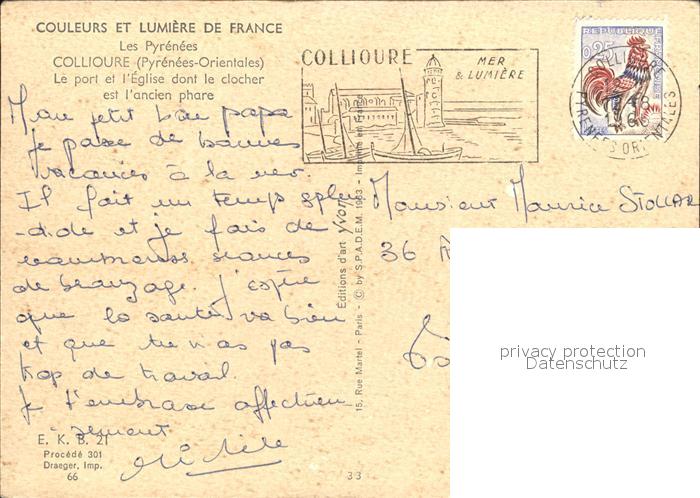 COULEURS ET LUMIÈRE DE FRANCE
Les Pyrénées
COLLIOURE (Pyrénées-Orientales)
Le port et l'Église dont le clocher
est l'ancien phare
Mon petit bon papa
Je passe de bonnes
vacances à la mer.
Il fait un temps splen
-dide et je fais de
nombreuses séances
de bronzage. J'espère
que la santé va bien
et que tu n'as pas
trop de travail.
Je t'embrasse affectueu
sement
E. K. B. 21
Procédé 301
Draeger, Imp.
66
33
15, Rue Martel - Paris - © by S.P.A.D.E.M. 1963 - Imprimé en France
Éditions d'art Yvon
COLLIOURE
MER
& LUMIÈRE
0,25
REPUBLIQUE FRANCAISE
COLLIOURE
PYRENEES ORIENTALES
Monsieur Maurice STOLLAR
36
privacy protection
Datenschutz